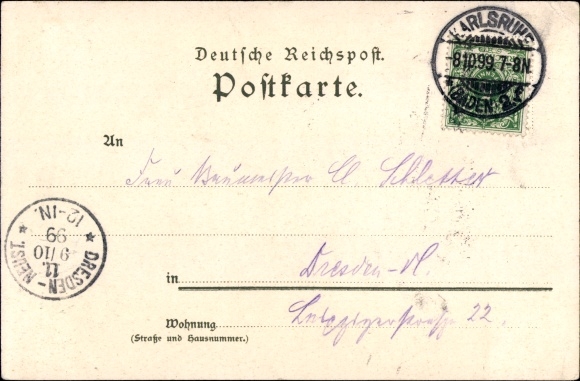 Deutsche Reichspost.
Postkarte.
KARLSRUHE
8.10.99.7-8N
*(BADEN.)2.
An
Frau Baumeister A. Schlotter
* DRESDEN-NEUST. *
11
9/10
99
12-1N.
in Dresden-N.
Wohnung Leipzigerstraße 22.
(Straße und Hausnummer.)